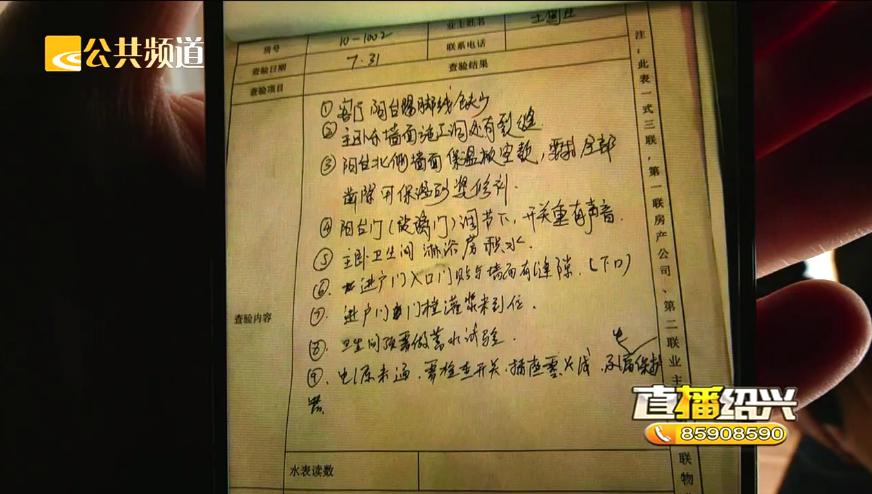 公共频道
房号
10-1002
业主姓名
联系电话
查验日期
7.31
查验项目
查验结果
查验内容
① 客厅阳台踢脚线缺少
② 主卧外墙面施工洞处有裂缝
③ 阳台北侧墙面保温板空鼓,要求全部
凿除用保温砂浆修补.
④ 阳台门(玻璃门)调节下,开关重有声音.
⑤ 主卧卫生间淋浴房积水.
⑥ 进户门入口门贴与墙面有缝隙.(下口)
⑦ 进户门门档灌浆未到位.
⑧ 卫生间需要做蓄水试验.
⑨ 电源未通.要检查开关.插座
水表读数
注:此表一式三联,第一联房产公司、第二联业主
联物
直播绍兴
85908590